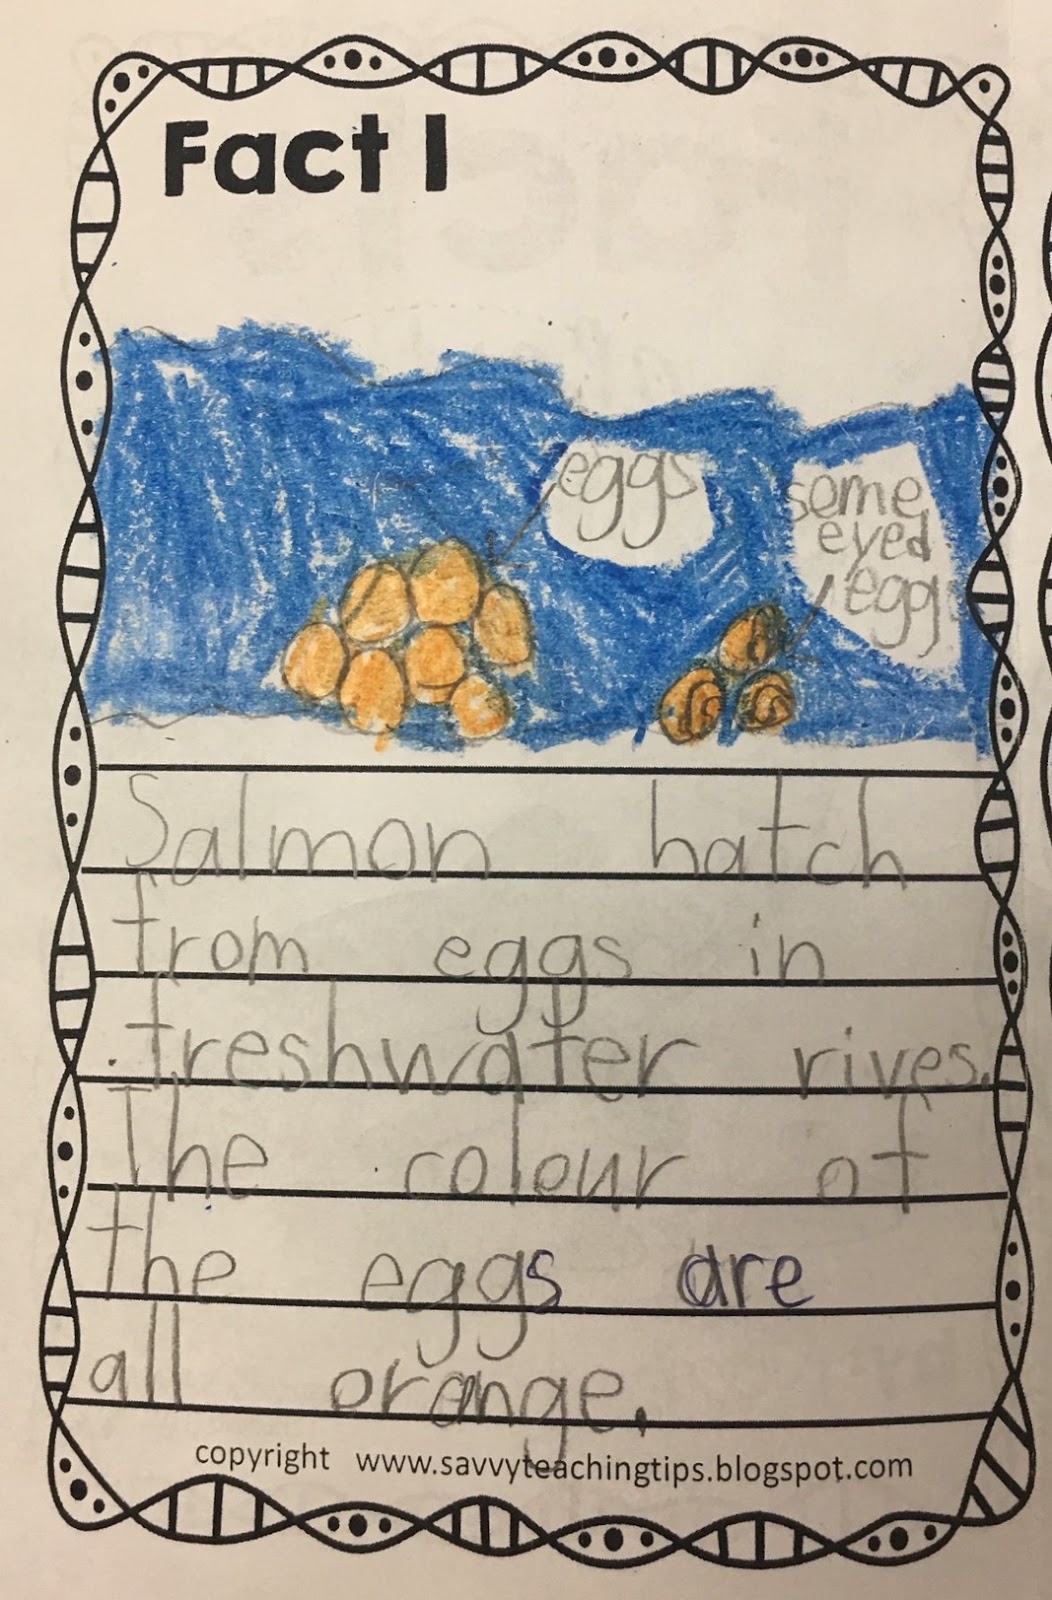 Fact 1
eggs
some
eyed
eggs
Salmon hatch
from eggs in
freshwater rives.
The colour of
the eggs are
all orange.
copyright www.savvyteachingtips.blogspot.com